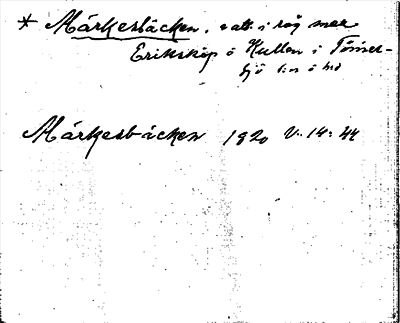 * Märkesbäcken, vatt. i råg mer
Erikskåp å Kullen i Tönner-
sjö s:n o hd
Märkesbäcken 1820 V. 14: 44